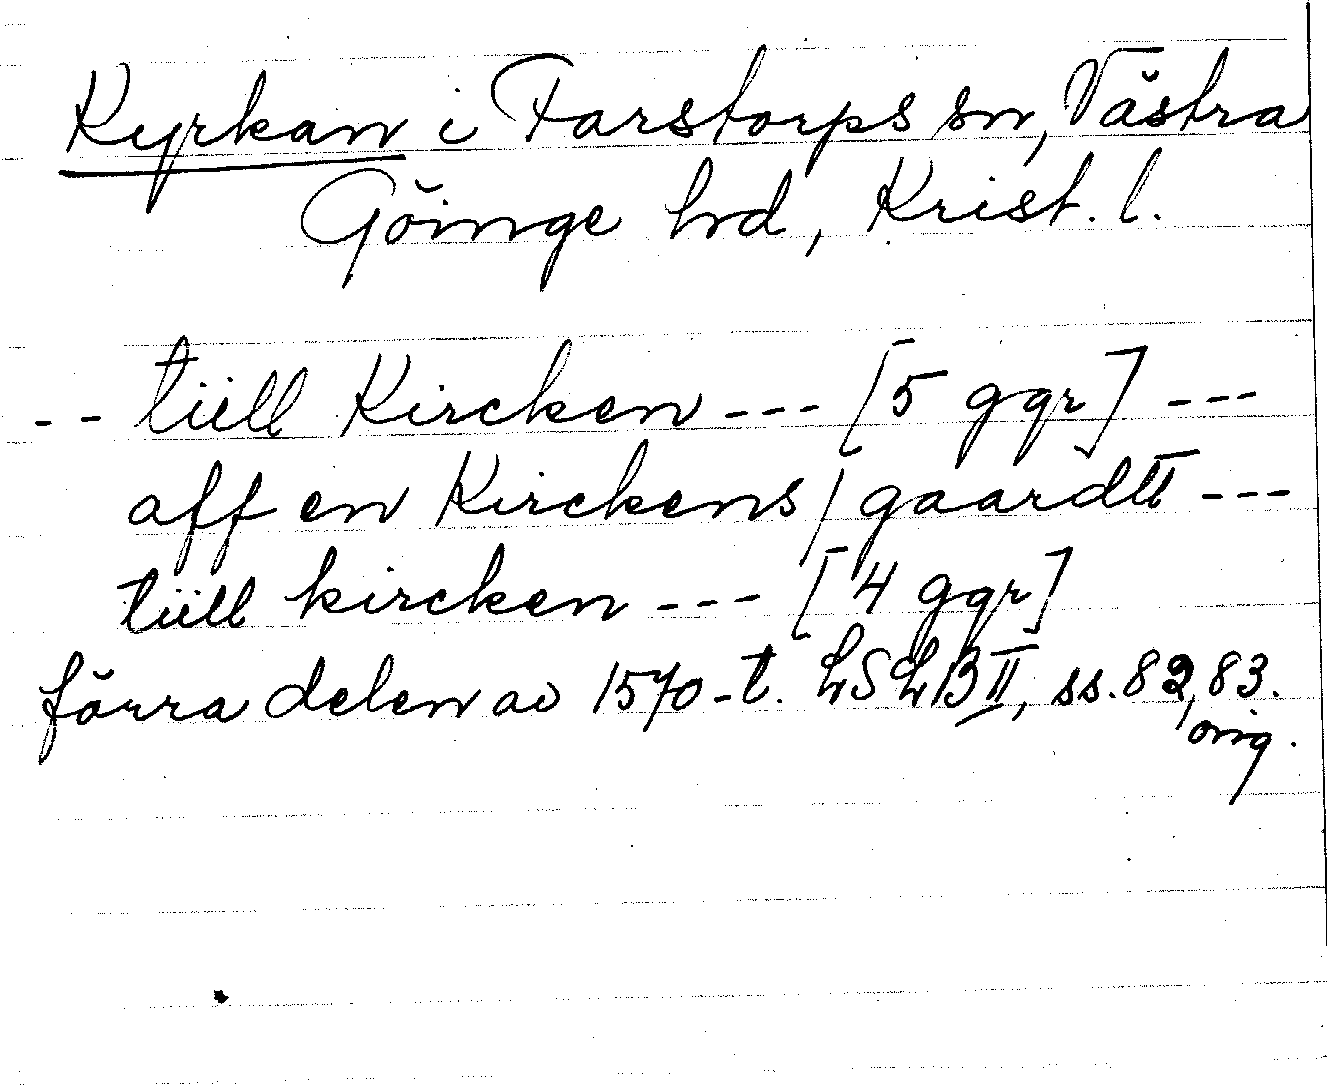 Kyrkan i Farstorps sn, Västra
Göinge hd, Krist. l.
-- tiill Kircken --- [5 ggr] ---
aff en Kirckens / gaardtt ---
tiill kircken --- [4 ggr]
förra delen av 1570-t. LSLB II, ss. 82, 83.
orig.